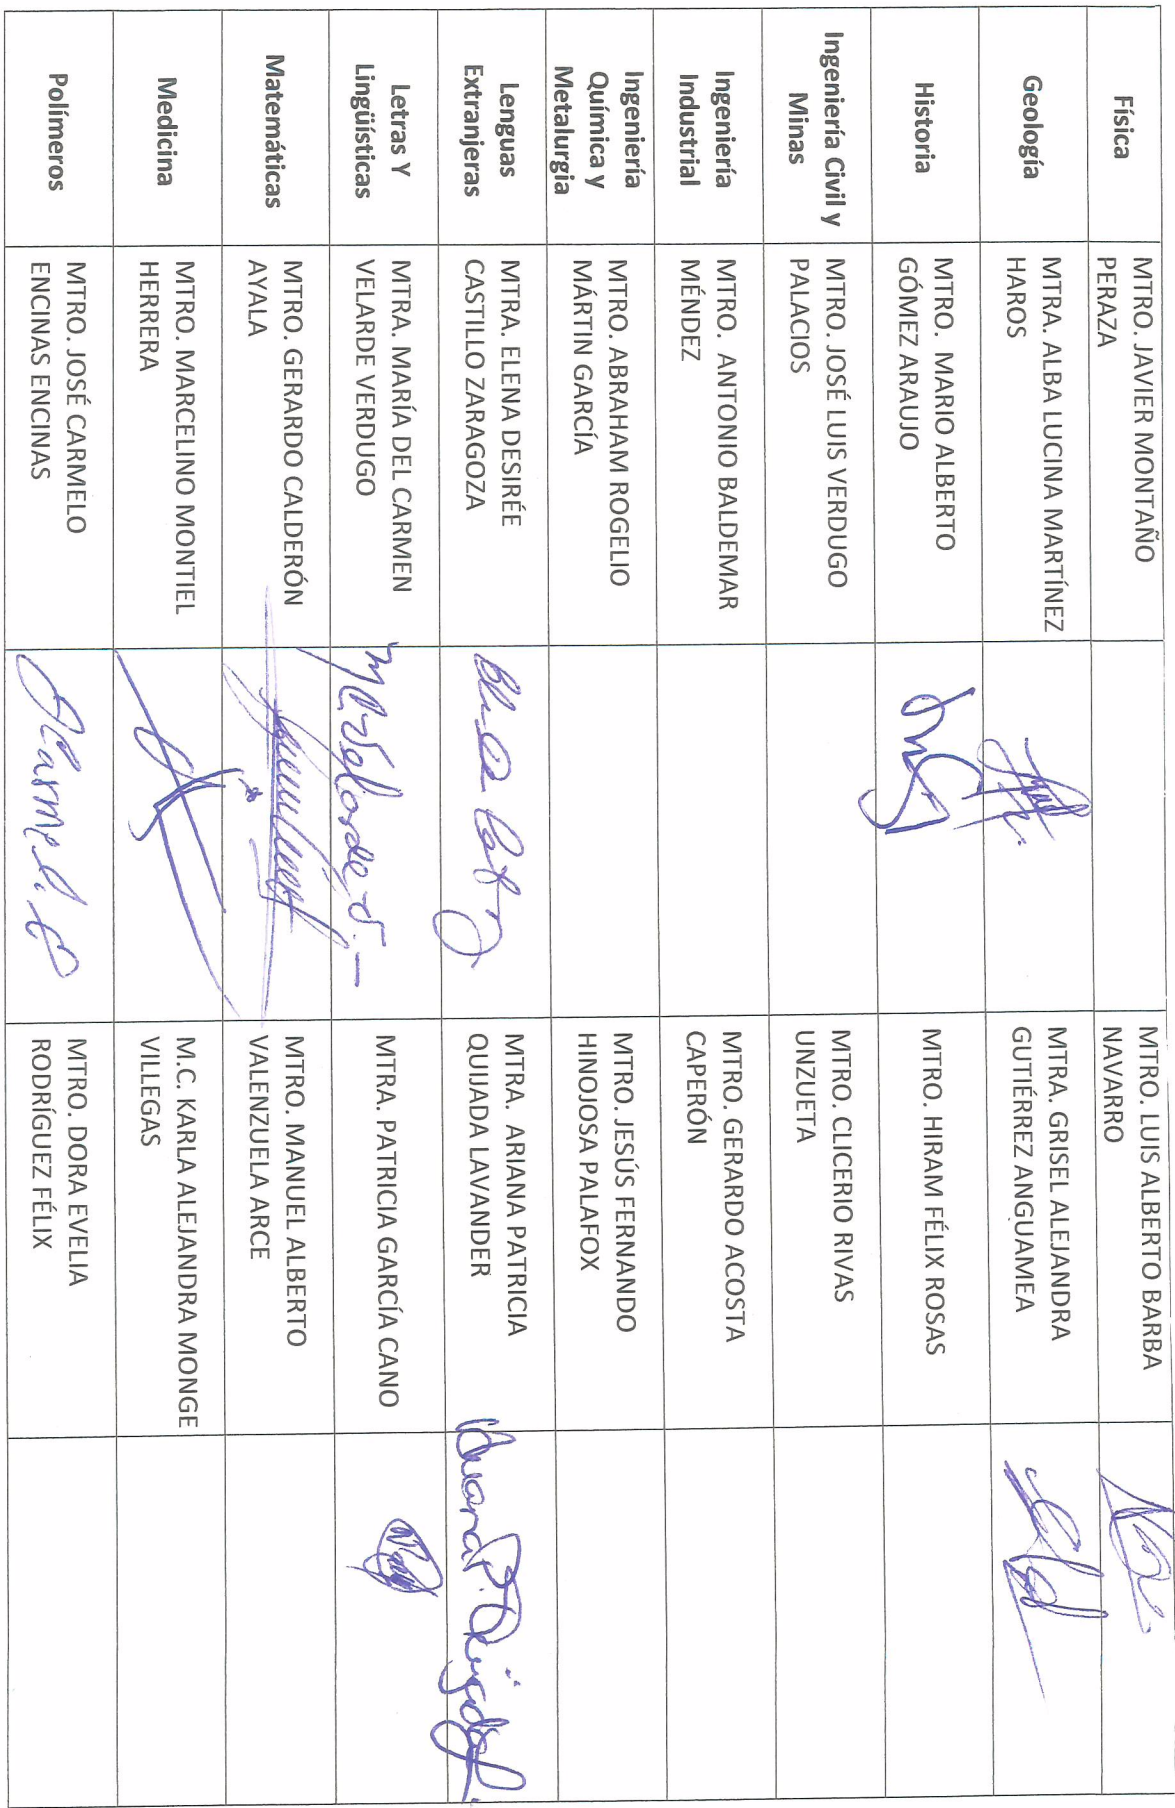 Física
MTRO. JAVIER MONTAÑO
PERAZA
MTRO. LUIS ALBERTO BARBA
NAVARRO
Geología
MTRA. ALBA LUCINA MARTÍNEZ
HAROS
MTRA. GRISEL ALEJANDRA
GUTIÉRREZ ANGUAMEA
Historia
MTRO. MARIO ALBERTO
GÓMEZ ARAUJO
MTRO. HIRAM FÉLIX ROSAS
Ingeniería Civil y
Minas
MTRO. JOSÉ LUIS VERDUGO
PALACIOS
MTRO. CLICERIO RIVAS
UNZUETA
Ingeniería
Industrial
MTRO. ANTONIO BALDEMAR
MÉNDEZ
MTRO. GERARDO ACOSTA
CAPERÓN
Ingeniería
Química y
Metalurgia
MTRO. ABRAHAM ROGELIO
MÁRTIN GARCÍA
MTRO. JESÚS FERNANDO
HINOJOSA PALAFOX
Lenguas
Extranjeras
MTRA. ELENA DESIRÉE
CASTILLO ZARAGOZA
MTRA. ARIANA PATRICIA
QUIJADA LAVANDER
Letras Y
Lingüísticas
MTRA. MARÍA DEL CARMEN
VELARDE VERDUGO
MTRA. PATRICIA GARCÍA CANO
Matemáticas
MTRO. GERARDO CALDERÓN
AYALA
MTRO. MANUEL ALBERTO
VALENZUELA ARCE
Medicina
MTRO. MARCELINO MONTIEL
HERRERA
M.C. KARLA ALEJANDRA MONGE
VILLEGAS
Polímeros
MTRO. JOSÉ CARMELO
ENCINAS ENCINAS
MTRO. DORA EVELIA
RODRÍGUEZ FÉLIX